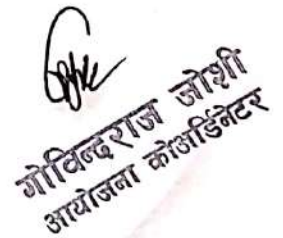 गोविन्दराज जोशी
आयोजना कोअर्डिनेटर